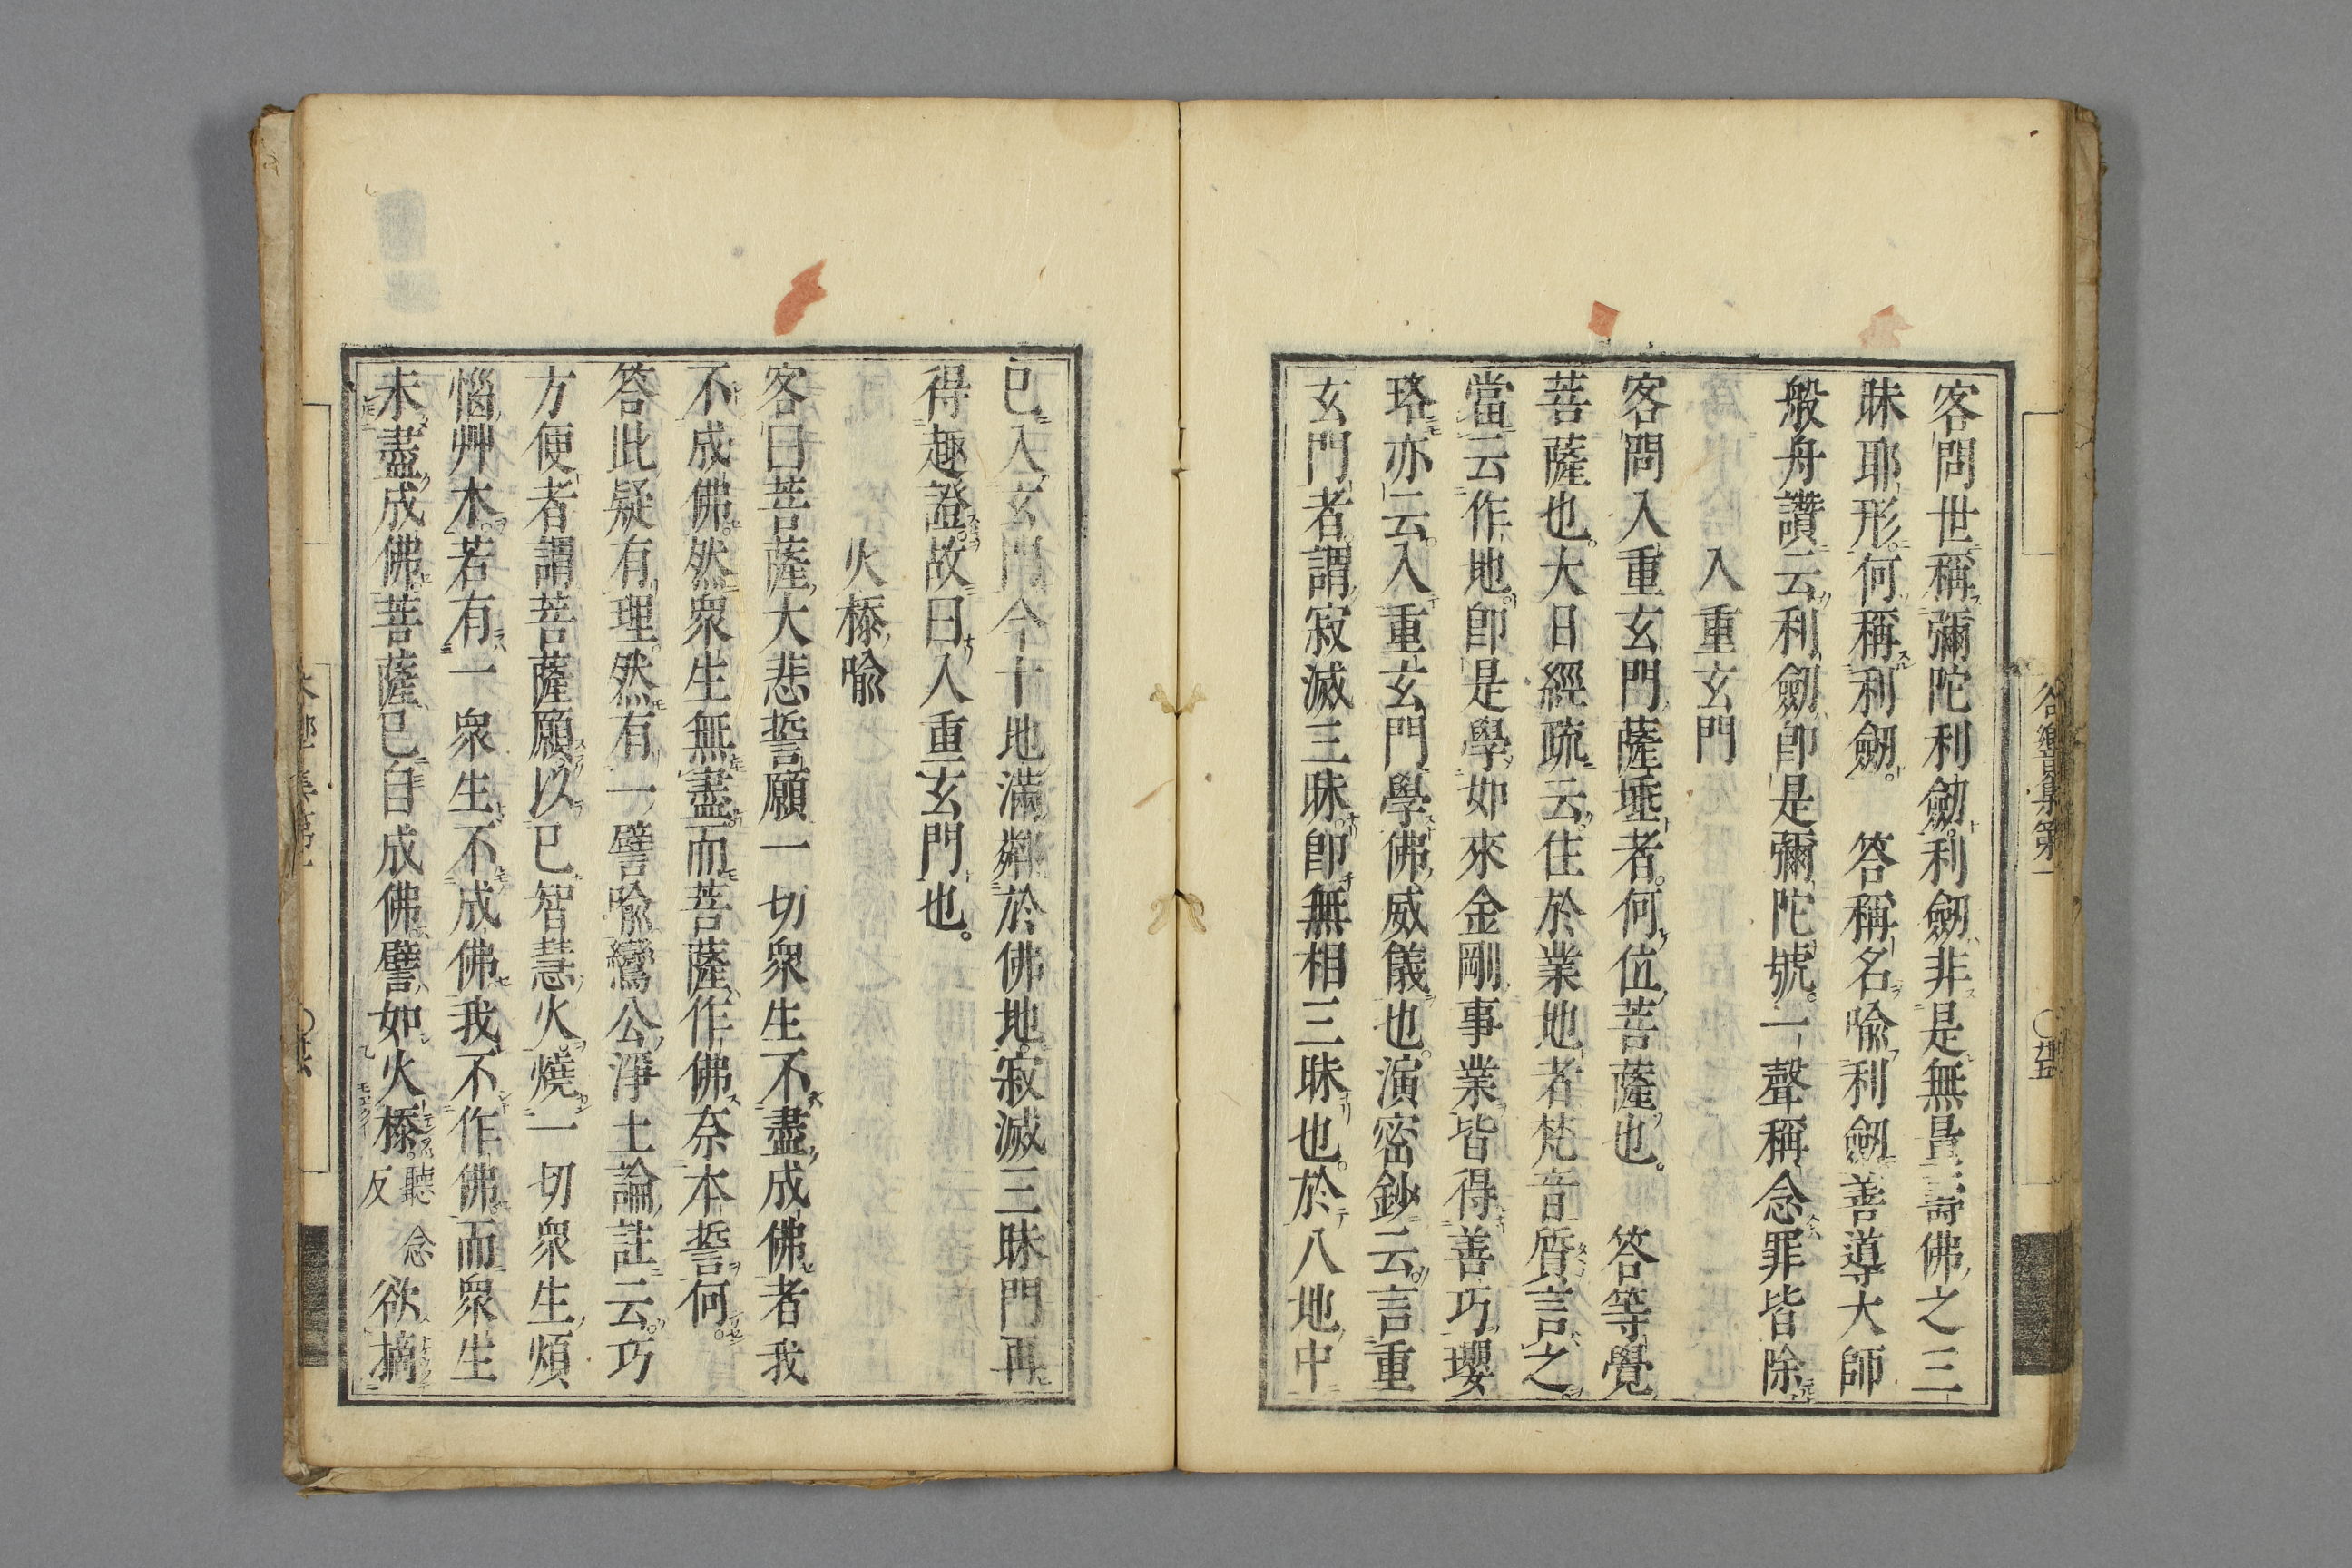 客問世稱彌陀利劒。利劒非是無量壽佛之三
昧耶形。何稱利劒。 答稱名喩利劒善導大師
般舟讚云利劒卽是彌陀號。一聲稱念罪皆除
入重玄門
客問入重玄門薩埵者。何位菩薩也。 答等覺
菩薩也。大日經疏云。住於業地者梵音質言之
當云作地。卽是學如來金剛事業皆得善巧瓔
珞亦云。入重玄門學佛威儀也。演密鈔云。言重
玄門者。謂寂滅三昧。卽無相三昧也。於八地中
已入玄門今十地滿鄰於佛地。寂滅三昧門再
得趣證。故曰入重玄門也。
火㮇喩
客曰菩薩大悲誓願一切衆生不盡成佛者我
不成佛。然衆生無盡而菩薩作佛奈本誓何。
答此疑有理。然有一譬喩鸞公淨土論註云。巧
方便者謂菩薩願。以己智慧火。燒一切衆生煩
惱艸木。若有一衆生不成佛我不作佛。而衆生
未盡成佛。菩薩已自成佛。譬如火㮇。聽念反欲摘
谷響集第一